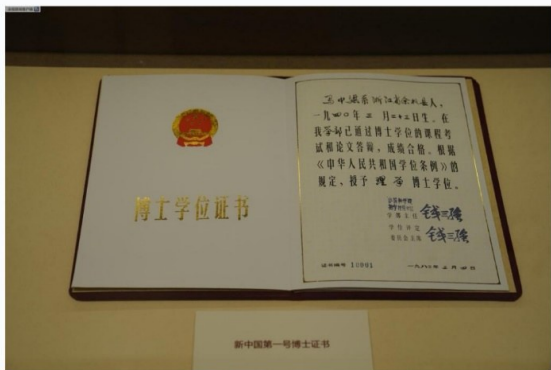 博士学位证书
马中骐系浙江省余杭县人，
一九四〇年二月二十二日生。在
我学部已通过博士学位的课程考
试和论文答辩，成绩合格。根据
《中华人民共和国学位条例》的
规定，授予理学博士学位。
学部主任 钱三强
学位评定
委员会主席 钱三强
证书编号 10001
新中国第一号博士证书